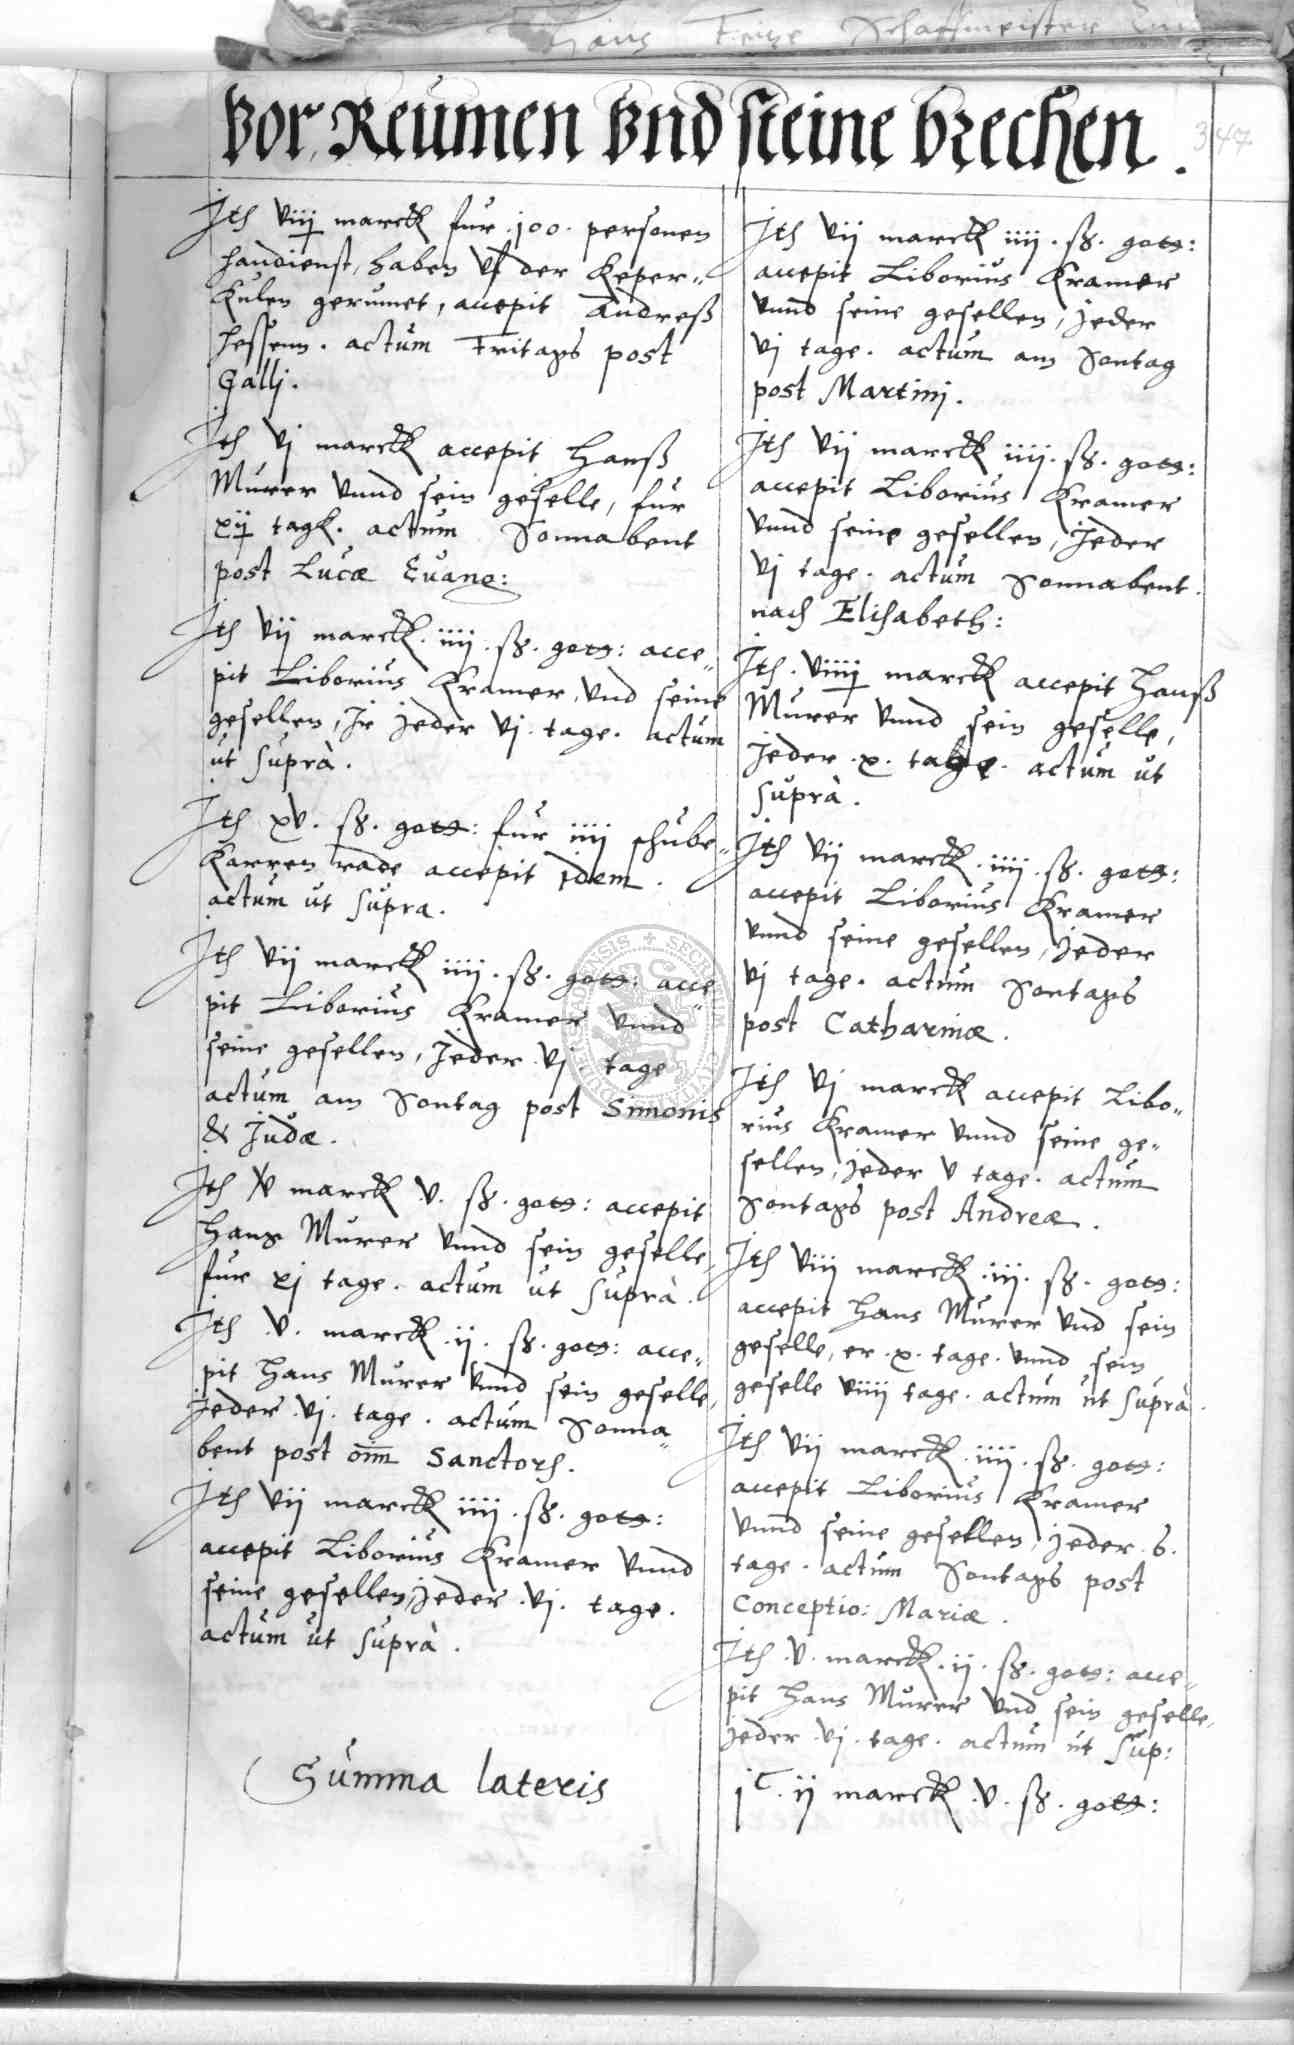 Hans Feige Schaffmeister
347
Vor Reumen Vnd steine brechen.
Jtē viij marck fur .100. personen
handienst, haben vf der Keper-
Kulen gerumet, accepit Andreß
Hessenn. actum Fritags post
Gallj.
Jtē vj marck accepit Hanß
Murer vnnd sein geselle, fur
xij tagk. actum Sonnabent
post Lucæ Euang:
Jtē vij marck. iiij. ß. goß: acce-
pit Liborius Kramer, vnd seine
gesellen, Jr jeder vj. tage. actum
ut suprà.
Jtē xv. ß. goß: fur iiij schube-
Karren rade accepit idem.
actum ut supra.
Jtē vij marck iiij. ß. goß: acce-
pit Liborius Kramer vnnd
seine gesellen, Jeder vj tage
actum am Sontag post Simonis
& Judæ.
Jtē v marck v. ß. goß: accepit
Hans Murer vnnd sein geselle,
fur xj tage. actum ut suprà.
Jtē .v. marck .ij. ß. goß: acce-
pit Hans Murer vnnd sein geselle,
jeder .vj. tage. actum Sonna-
bent post oīm Sanctorū.
Jtē vij marck iiij. ß. goß:
accepit Liborius Kramer vnnd
seine gesellen, jeder .vj. tage.
actum ut suprà.
Summa lateris
Jtē vij marck iiij. ß. goß:
accepit Liborius Kramer
vnnd seine gesellen, jeder
vj tage. actum am Sontag
post Martinj.
Jtē vij marck iiij. ß. goß:
accepit Liborius Kramer
vnnd seine gesellen, Jeder
vj tage. actum Sonnabent.
nach Elisabeth:
Jtē. viiij marck accepit Hanß
Murer vnnd sein geselle,
Jeder .x. tage. actum ut
suprà.
Jtē vij marck. iiij. ß. goß:
accepit Liborius Kramer
vnnd seine gesellen, jeder
vj tage. actum Sontags
post Catharinæ.
Jtē vj marck accepit Libo-
rius Kramer vnnd seine ge-
sellen, jeder v tage. actum
Sontags post Andreæ.
Jtē viij marck .iij. ß. goß:
accepit Hans Murer vnd sein
geselle, er .x. tage. vnnd sein
geselle viiij tage. actum ut suprà.
Jtē vij marck .iiij. ß. goß:
accepit Liborius Kramer
vnnd seine gesellen, jeder .6.
tage. actum Sontags post
Conceptio: Mariæ.
Jtē .v. marck .ij. ß. goß: acce-
pit Hans Murer vnd sein geselle,
jeder .vj. tage. actum ut sup:
jᶜ. ij marck .v. ß. goß: